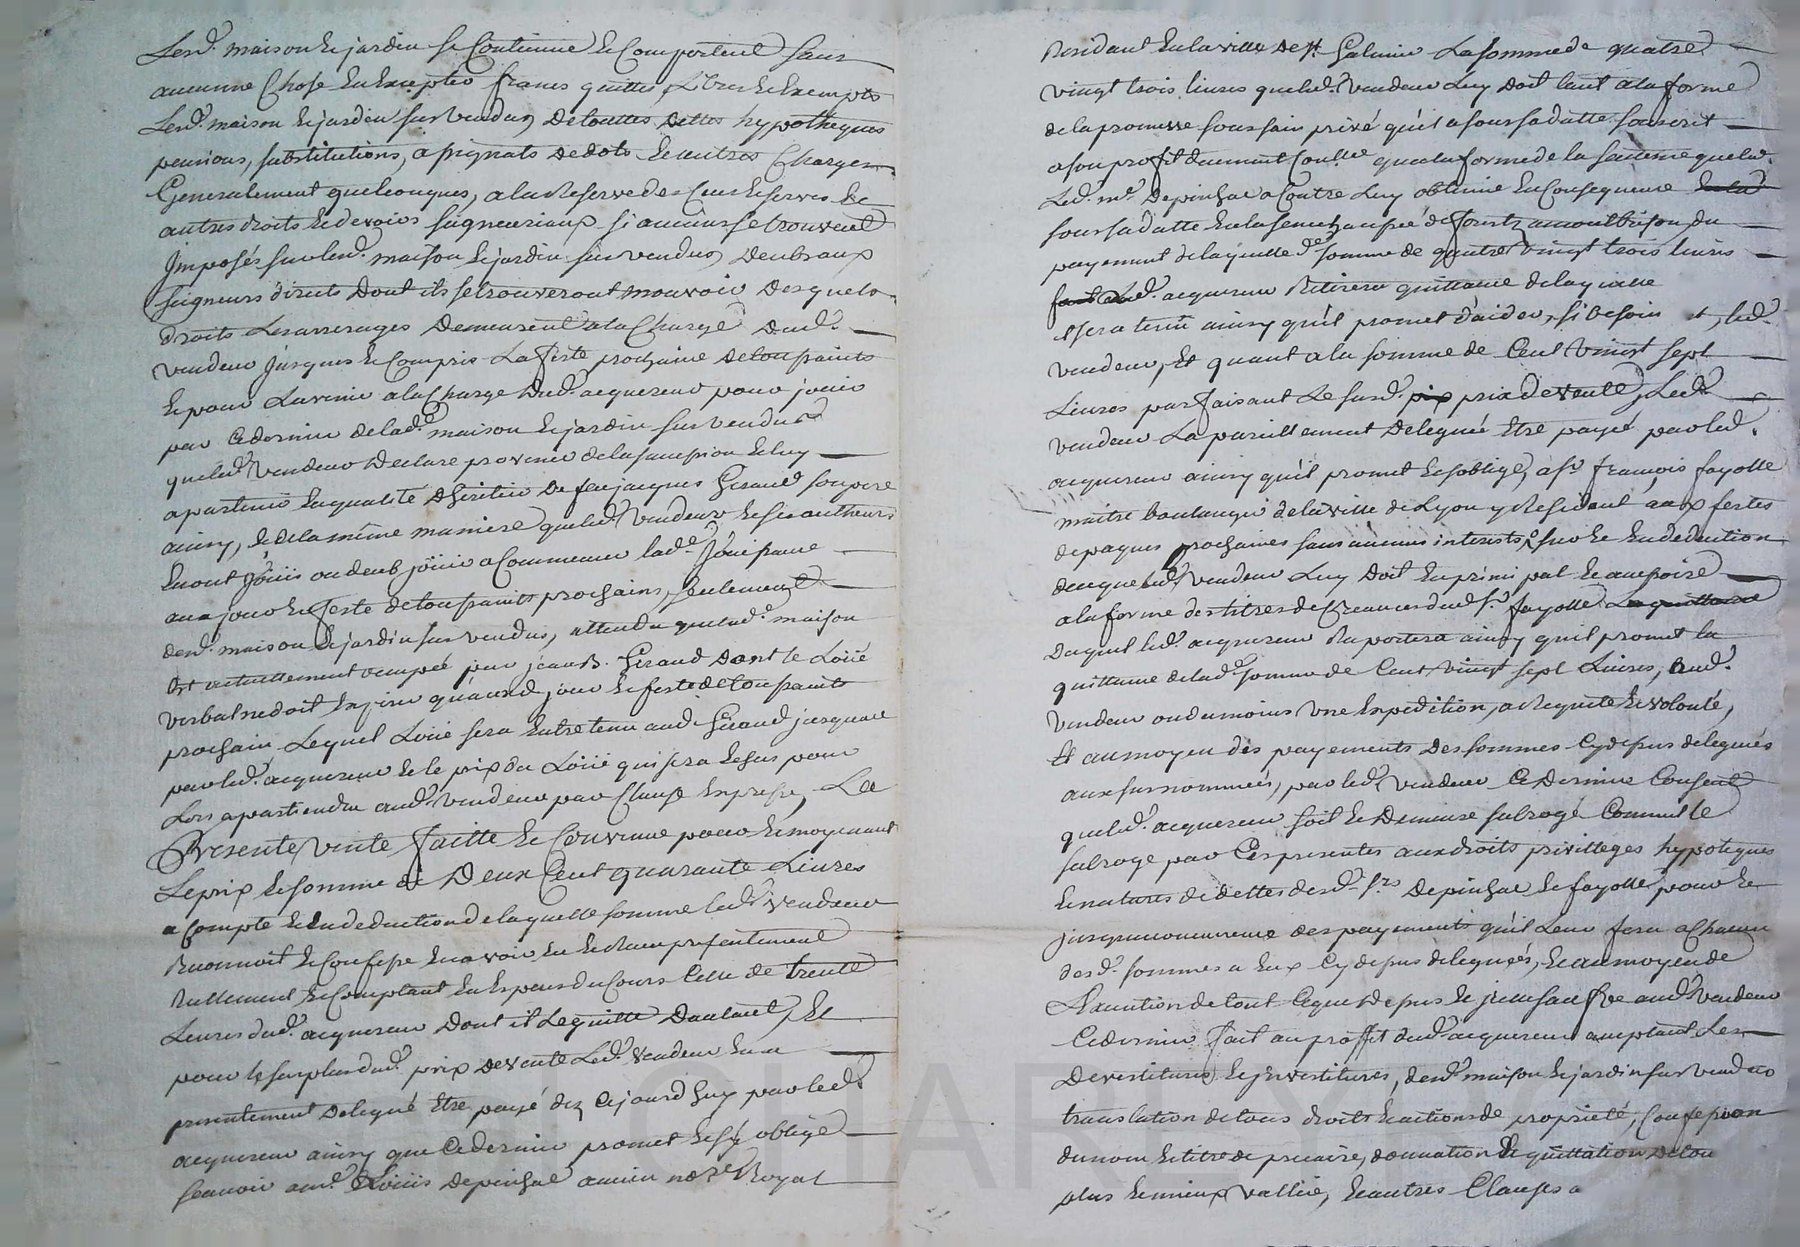 Lesd. maison et jardin se Contienne et Comportent sans
aucune Chose En Excepter francs quittes, Libres et Exempts
Lesd. maison et jardin sus vendus, de touttes dettes hypotheques
pensions, substitutions, apignats de dots et autres Charges
Generalement quelconques, a la Reserve des Cens et servis et
autres droits et devoirs seigneuriaux si aucuns se trouvent
Imposés sur lesd. maison et jardin sus vendus, deub aux
seigneurs directs dont ils se trouveront mouvoir desquels
droits Les arrerages demeurent a la Charge dud.
vendeur jusques et Compris La feste prochaine de toussaints
et pour Lavenir a la Charge dud. acquereur pour jouir
par Ce dernier de lad. maison et jardin sus vendus
que led. vendeur declare provenir de la succession et luy
apartenir En qualité dheritier de feu jacques Giraud son pere
ainsy, et de la même maniere que led. vendeur et ses autheurs
En ont joüis ou deub joüir a Commencer lad. jouissance
au jour et feste de toussaints prochains, seulement
desd. maison et jardin sus vendus, attendu que lad. maison
Est actuellement ocupée par jean B. Giraud dont le Loüé
verbal ne doit Expirer qu'aud. jour et feste de toussaints
prochain Lequel Loüé sera Entretenu aud. Giraud jusqua ce
par led. acquereur et le prix du Loüé qui sera Echus pour
Lors apartiendra aud. vendeur par Clause Expresse, La
Presente vente faitte et Convenue pour et moyenant
Le prix et somme de Deux Cent quarante Livres
a Compte et En deduction de laquelle somme led. vendeur
Reconnoit et Confesse En avoir Eu et Receu presentement
Reellement et Comptant En Especes du Cours Celle de trente
Livres dud. acquereur dont il Le quitte Dautant, Et
pour le surplus dud. prix de vente Led. vendeur En a
presentement delegué Etre payé dez Cejourdhuy par led.
acquereur ainsy que Ce dernier promet et s'y oblige
scavoir a me. Loüis depinhac ancien nore. Royal
Residant En la ville de st. Galmier La somme de quatre
vingt trois livres que led. vendeur Luy doit tant a la forme
de la promesse sous sain privé qu'il a sous sa datte souscrit
a son profit que a la forme de la sentence que led.
Led. me. Depinhac a Contre Luy obtenue En Consequence
sous sa datte En la senechaussée de forêtz a montbrison du
payement de laquelle de. somme de quatre vingt trois livres
led. acquereur Retirera quittance de laquelle
il sera tenu ainsy qu'il promet d'aider, si besoin est, led.
vendeur, Et quant a la somme de Cent vingt sept
Livres parfaisant Le susd. prix de vente, Led.
vendeur La pareillement deleguée Etre payé par led.
acquereur ainsy qu'il promet et s'oblige, a sr. françois fayolle
maitre boulanger de la ville de Lyon y Residant aux festes
de paques prochaines sans aucuns interests, sur et En deduction
de ce que led. vendeur Luy doit En principal et accessoire
a la forme des titres de Creances dud. sr. fayolle
Duquel led. acquereur Raportera ainsy qu'il promet la
quittance de lad. somme de Cent vingt sept Livres, aud.
vendeur ou du moins une Expedition, a Requete et volonté,
Et au moyen des payements des sommes Cy dessus deleguées
aux susnommés, par led. vendeur Ce dernier Consent
que led. acquereur soit et Demeure subrogé Comme il le
subroge par Ces presentes aux droits privilleges hypoteques
et natures de dettes desd. srs. Depinhac et fayolle pour et
jusqua concurrence des payements qu'il Leur fera a Chacun
desd. sommes a Eux Cy dessus deleguées, et au moyen de
L'exécution de tout Ce que dessus et jusqu'a Ce aud. vendeur
Ce dernier fait au proffit dud. acquereur acceptant Les
Devestitures et Investitures, desd. maison et jardin sus vendus
translation de tous droits et actions de proprieté, Confession
du nom et titre de precaire, donnation et quittation de la
plus et mieux vallüe, et autres Clauses a